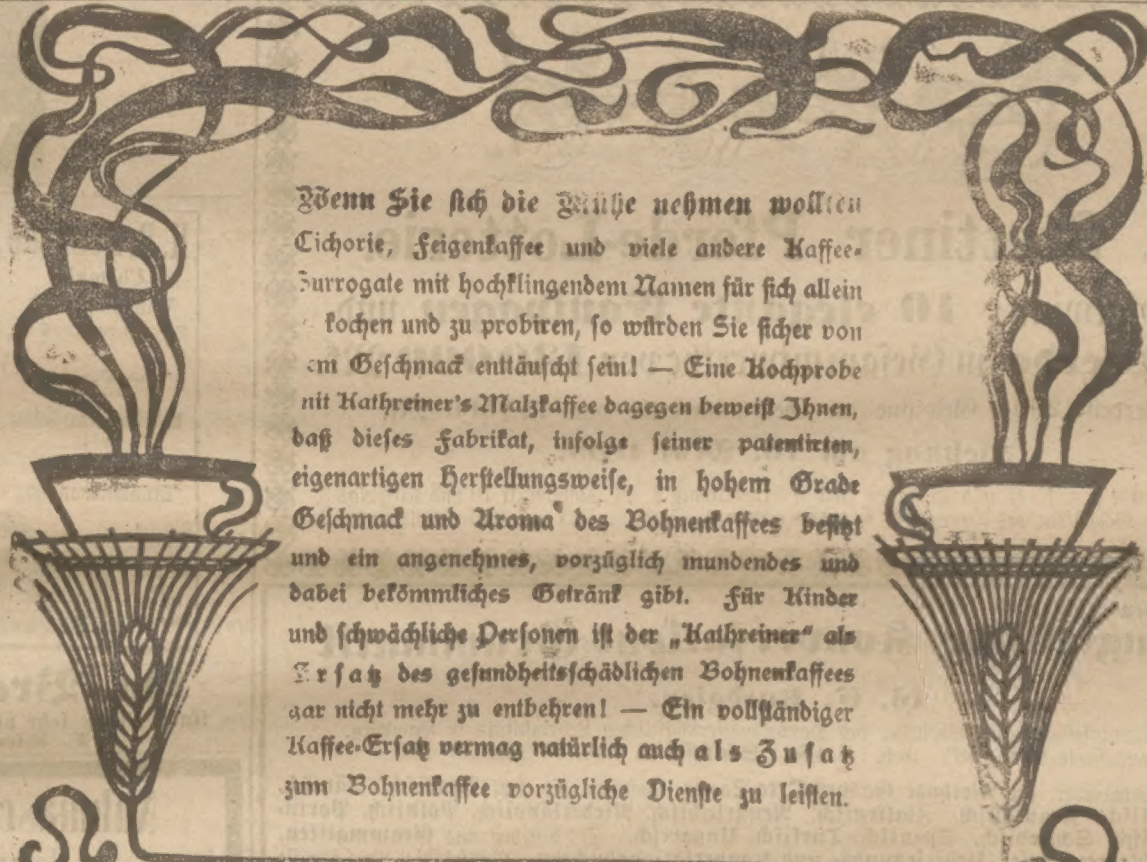 Wenn Sie sich die Mühe nehmen wollten
Cichorie, Feigenkaffee und viele andere Kaffee-
Surrogate mit hochklingendem Namen für sich allein
kochen und zu probiren, so würden Sie sicher von
em Geschmack enttäuscht sein! — Eine Kochprobe
mit Kathreiner's Malzkaffee dagegen beweist Ihnen,
daß dieses Fabrikat, infolge seiner patentirten,
eigenartigen Herstellungsweise, in hohem Grade
Geschmack und Aroma des Bohnenkaffees besitzt
und ein angenehmes, vorzüglich mundendes und
dabei bekömmliches Getränk gibt. Für Kinder
und schwächliche Personen ist der „Kathreiner“ als
Ersatz des gesundheitsschädlichen Bohnenkaffees
gar nicht mehr zu entbehren! — Ein vollständiger
Kaffee-Ersatz vermag natürlich auch als Zusatz
zum Bohnenkaffee vorzügliche Dienste zu leisten.